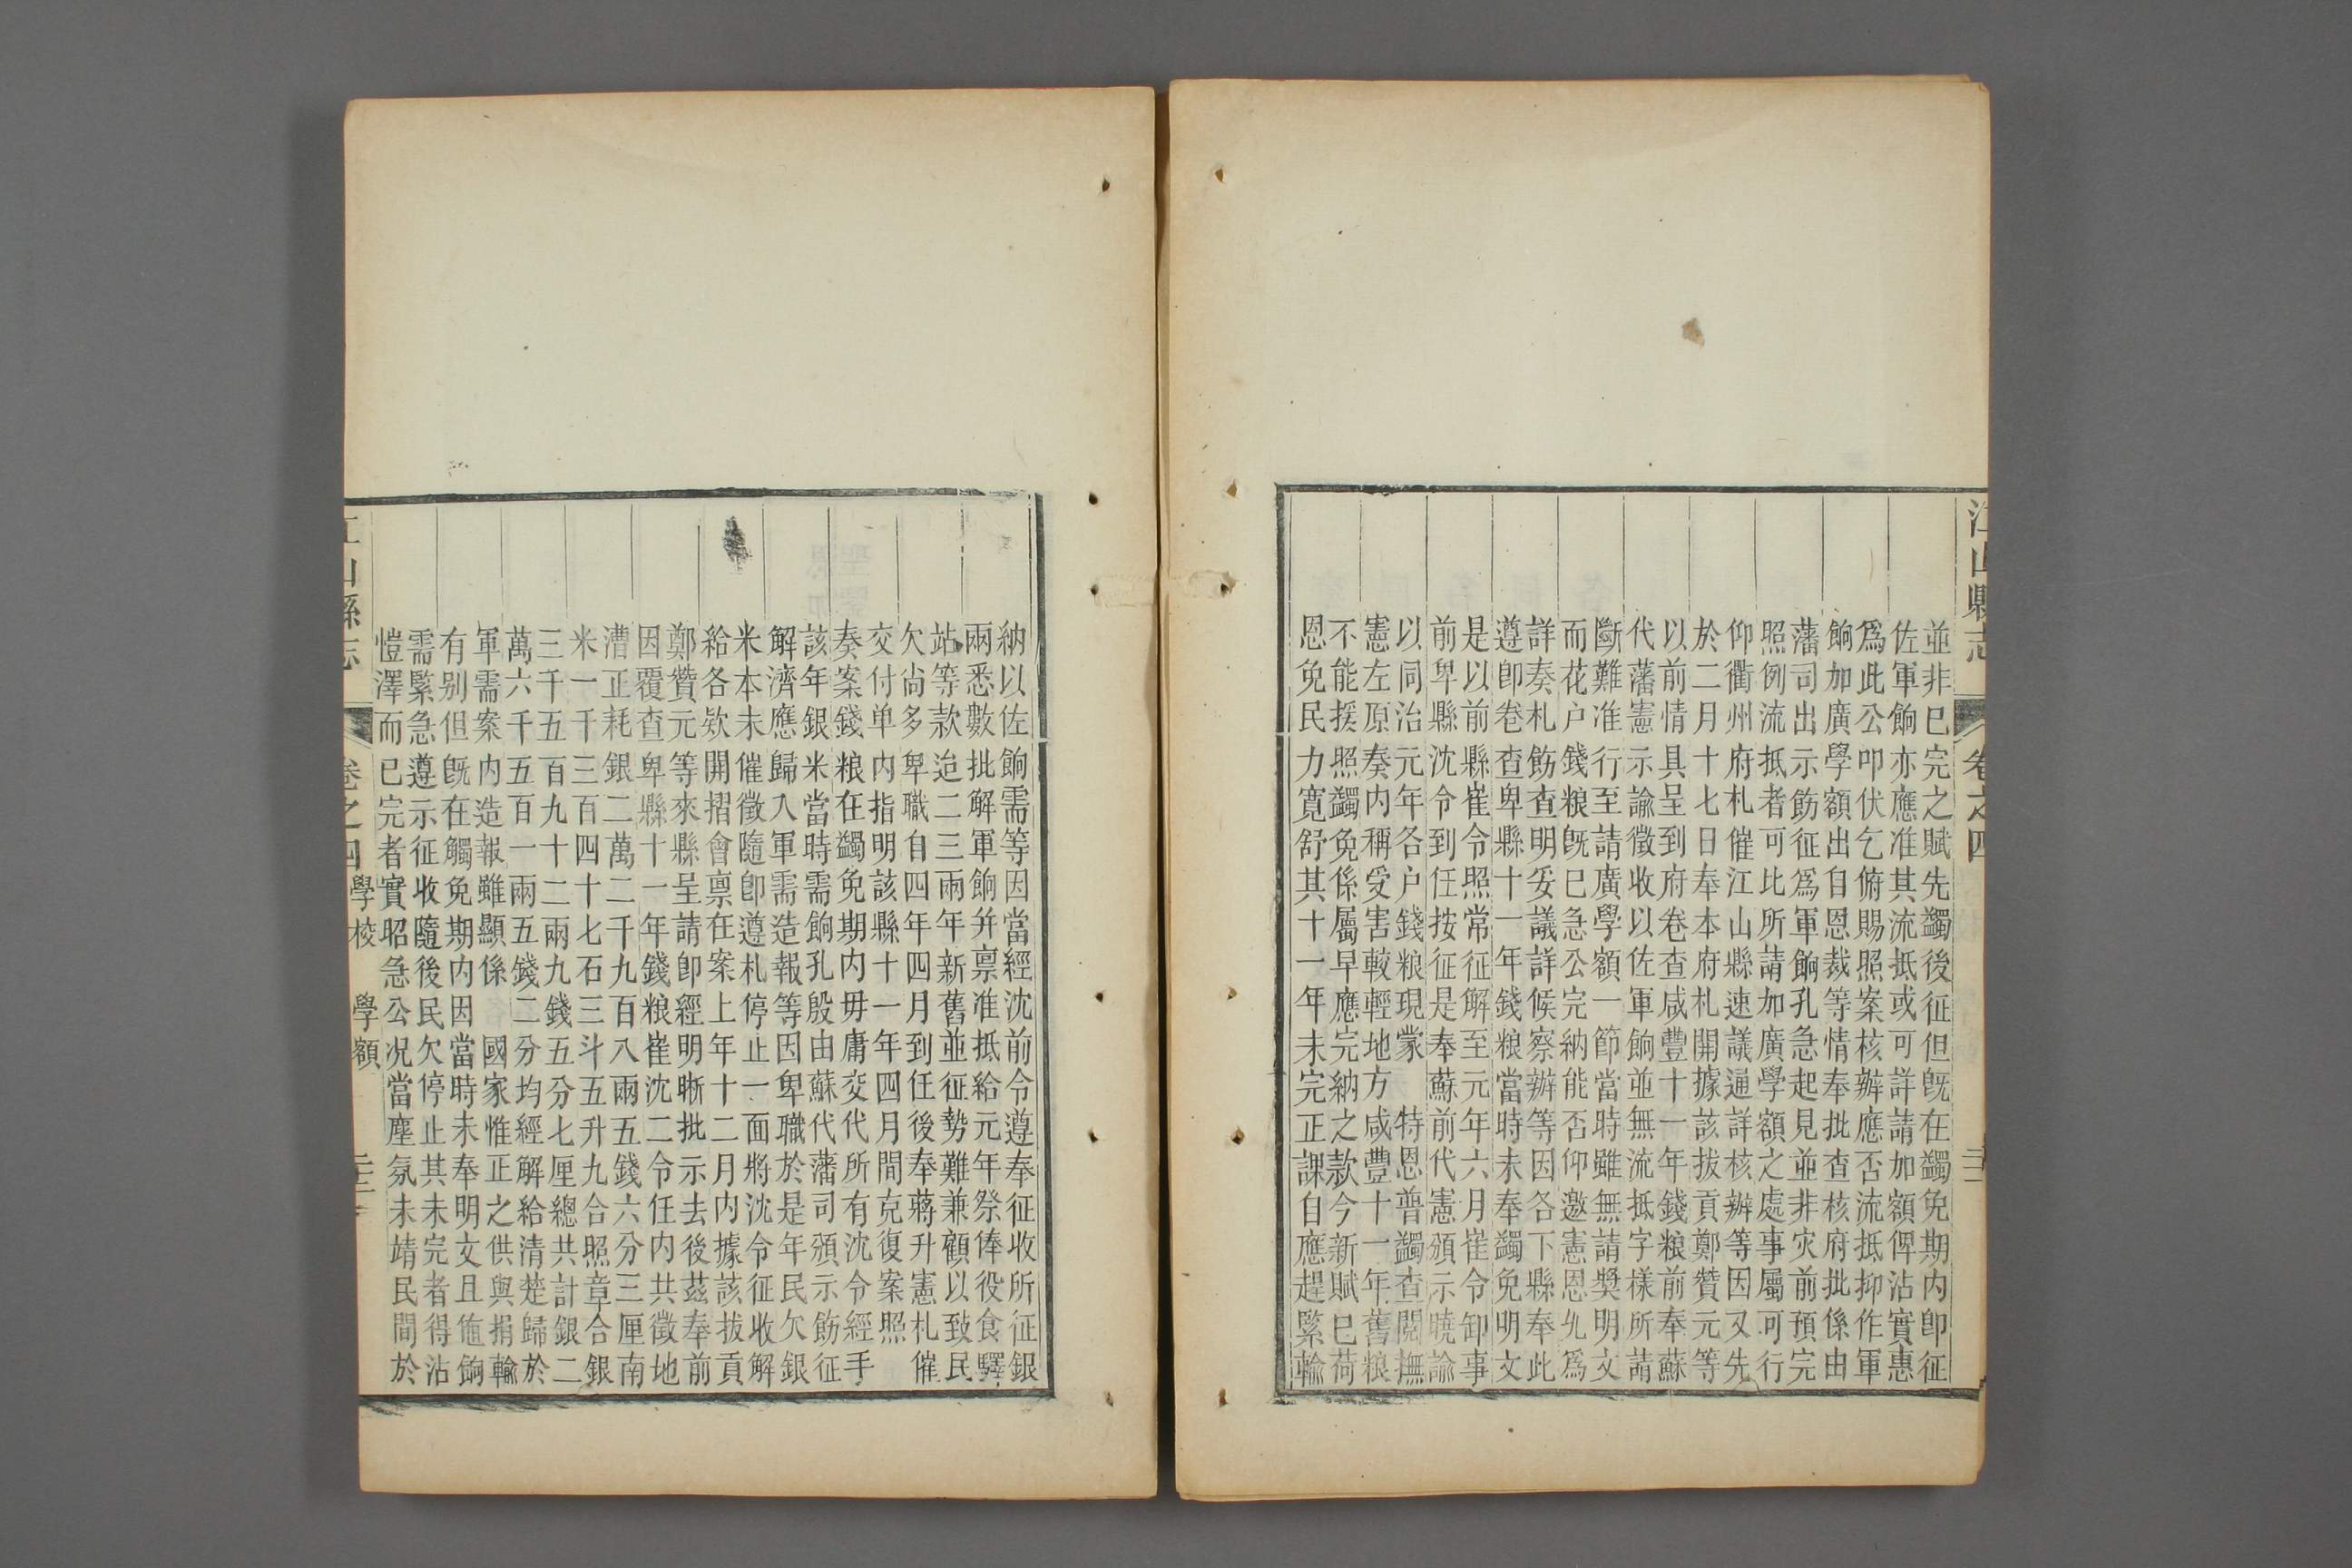 江山縣志 卷之四
並非已完之賦先蠲後征但旣在蠲免期内卽征
佐軍餉亦應准其流抵或可詳請加額俾沾實惠
爲此公叩伏乞俯賜照案核辦應否流抵抑作軍
餉加廣學額出自恩裁等情奉批查核府批係由
藩司出示飭征爲軍餉孔急起見並非灾前預完
照例流抵者可比所請加廣學額之處事屬可行
仰衢州府札催江山縣速議逼詳核辦等因又先
於二月十七日奉本府札開據該拔貢鄭贊元等
以前情具呈到府卷查咸豐十一年錢粮前奉蘇
代藩憲示諭徵收以佐軍餉並無流抵字樣所請
斷難准行至請廣學額一節當時雖無請獎明文
而花户錢粮旣已急公完納能否仰邀憲恩允爲
詳奏札飭查明妥議詳候察辦等因各下縣奉此
遵卽卷查卑縣十一年錢粮當時未奉蠲免明文
是以前縣崔令照常征解至元年六月崔令卸事
前卑縣沈令到任按征是奉蘇前代憲頒示曉諭
以同治元年各户錢粮現蒙 特恩普蠲查閲撫
憲左原奏内稱受害較輕地方咸豐十一年舊粮
不能援照蠲免係屬早應完納之款今新賦已荷
恩免民力寬舒其十一年未完正課自應趕緊輸
納以佐餉需等因當經沈前令遵奉征收所征銀
兩悉數批解軍餉并禀准抵給元年祭俸役食驛
站等款迨二三兩年新舊並征勢難兼顧以致民
欠尚多卑職自四年四月到任後奉蔣升憲札催
交付单内指明該縣十一年四月間克復案照
奏案錢粮在蠲免期内毋庸交代所有沈令經手
該年銀米當時需餉孔殷由蘇代藩司頒示飭征
解濟應歸入軍需造報等因卑職於是年民欠銀
米本未催徵隨卽遵札停止一面將沈令征收解
給各欵開摺會禀在案上年十二月内據該拔貢
鄭贊元等來縣呈請卽經明晰批示去後茲奉前
因覆查卑縣十一年錢粮崔沈二令任内共徵地
漕正耗銀二萬二千九百八兩五錢六分三厘南
米一千三百四十七石三斗五升九合照章合銀
三千五百九十二兩九錢五分七厘總共計銀二
萬六千五百一兩五錢二分均經解給清楚歸於
軍需案内造報雖顯係 國家惟正之供與捐輸
有别但旣在觸免期内因當時未奉明文且值餉
需緊急遵示征收隨後民欠停止其未完者得沾
愷澤而已完者實昭急公况當塵氛未靖民間於
江山縣志 卷之四 學校 學額